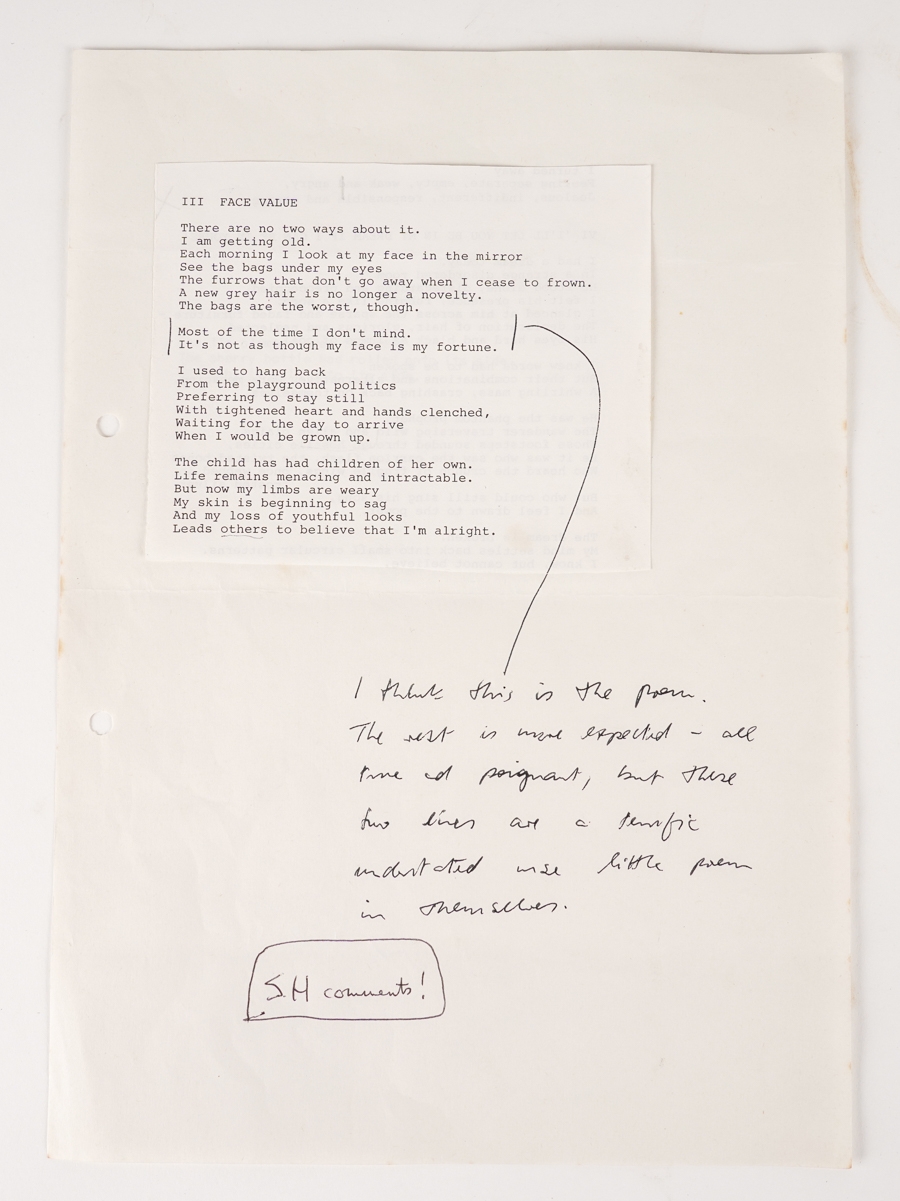 III FACE VALUE
There are no two ways about it.
I am getting old.
Each morning I look at my face in the mirror
See the bags under my eyes
The furrows that don't go away when I cease to frown.
A new grey hair is no longer a novelty.
The bags are the worst, though.
Most of the time I don't mind.
It's not as though my face is my fortune.
I used to hang back
From the playground politics
Preferring to stay still
With tightened heart and hands clenched,
Waiting for the day to arrive
When I would be grown up.
The child has had children of her own.
Life remains menacing and intractable.
But now my limbs are weary
My skin is beginning to sag
And my loss of youthful looks
Leads others to believe that I'm alright.
I think this is the poem.
The rest is more expected – all
true and poignant, but these
two lines are a terrific
understated wise little poem
in themselves.
S.H comments!